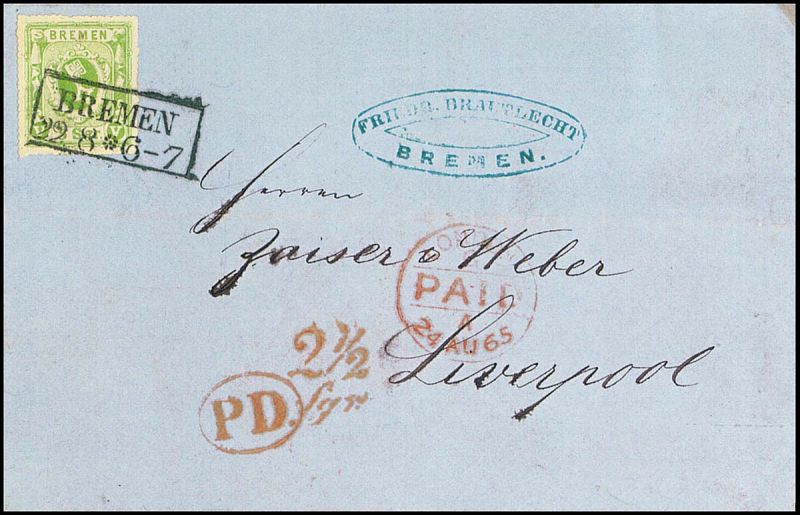 BREMEN
5 SGR
BREMEN
22 8 * 6-7
FRIEDR. BRAUTLECHT
BREMEN.
Herren
Zaiser & Weber
Liverpool
PAID
24 AU 65
2 1/2
Sgr.
PD.